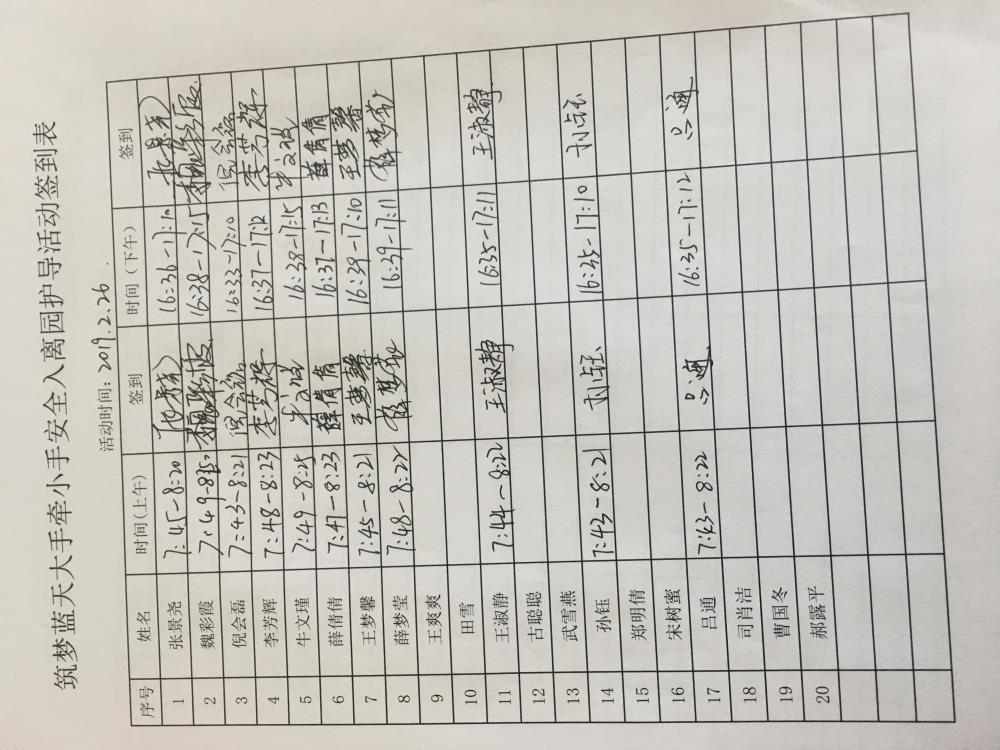 筑梦蓝天大手牵小手安全入离园护导活动签到表
活动时间：2019.2.26
序号 姓名 时间（上午） 签到 时间（下午） 签到
1 张景尧 7:45-8:20 张景尧 16:36-17:10 张景尧
2 魏彩霞 7:49-8:25 魏彩霞 16:38-17:15 魏彩霞
3 倪会磊 7:43-8:21 倪会磊 16:33-17:10 倪会磊
4 李芳辉 7:48-8:23 李芳辉 16:37-17:12 李芳辉
5 牛文瑾 7:49-8:25 牛文瑾 16:38-17:15 牛文瑾
6 薛倩倩 7:47-8:23 薛倩倩 16:37-17:13 薛倩倩
7 王梦馨 7:45-8:21 王梦馨 16:39-17:10 王梦馨
8 薛梦莹 7:48-8:22 薛梦莹 16:39-17:11 薛梦莹
9 王爽爽
10 田雪
11 王淑静 7:44-8:22 王淑静 16:35-17:11 王淑静
12 古聪聪
13 武雪燕
14 孙钰 7:43-8:21 孙钰 16:35-17:10 孙钰
15 郑明倩
16 宋树蜜
17 吕通 7:43-8:22 吕通 16:35-17:12 吕通
18 司肖洁
19 曹国冬
20 郝露平